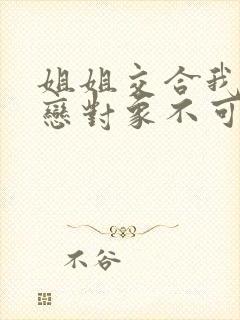 姐姐交合我
戀對象不可
不谷